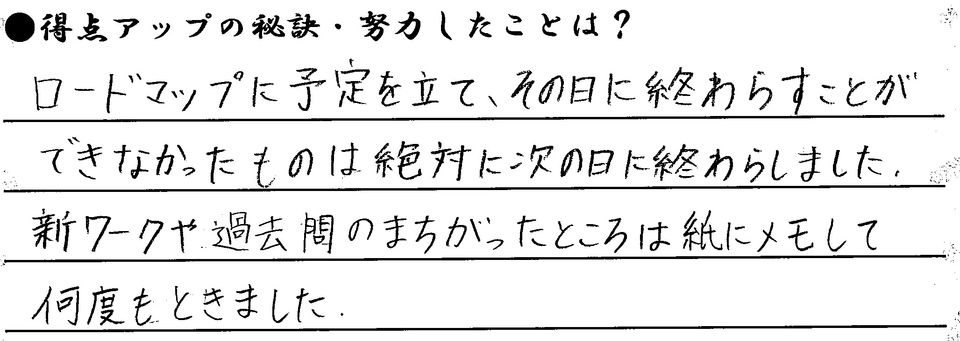 ●得点アップの秘訣・努力したことは？
ロードマップに予定を立て、その日に終わらすことが
できなかったものは絶対に次の日に終わらしました.
新ワークや過去問のまちがったところは紙にメモして
何度もときました.